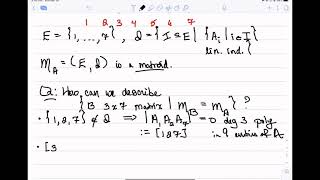 1 2 3 4 5 6 7
E = {1, ..., 7}, 𝓘 = {I ⊆ E | {A_i | i ∈ I} lin. ind.}
M_A = (E, 𝓘) is a matroid.
Q: How can we describe
{B 3x7 matrix | M_B = M_A} ?
• {1,2,7} ∉ 𝓘 ⟹ |A_1 A_2 A_7| = 0 deg 3 poly
:= [127] in 9 entries of A.
• [3